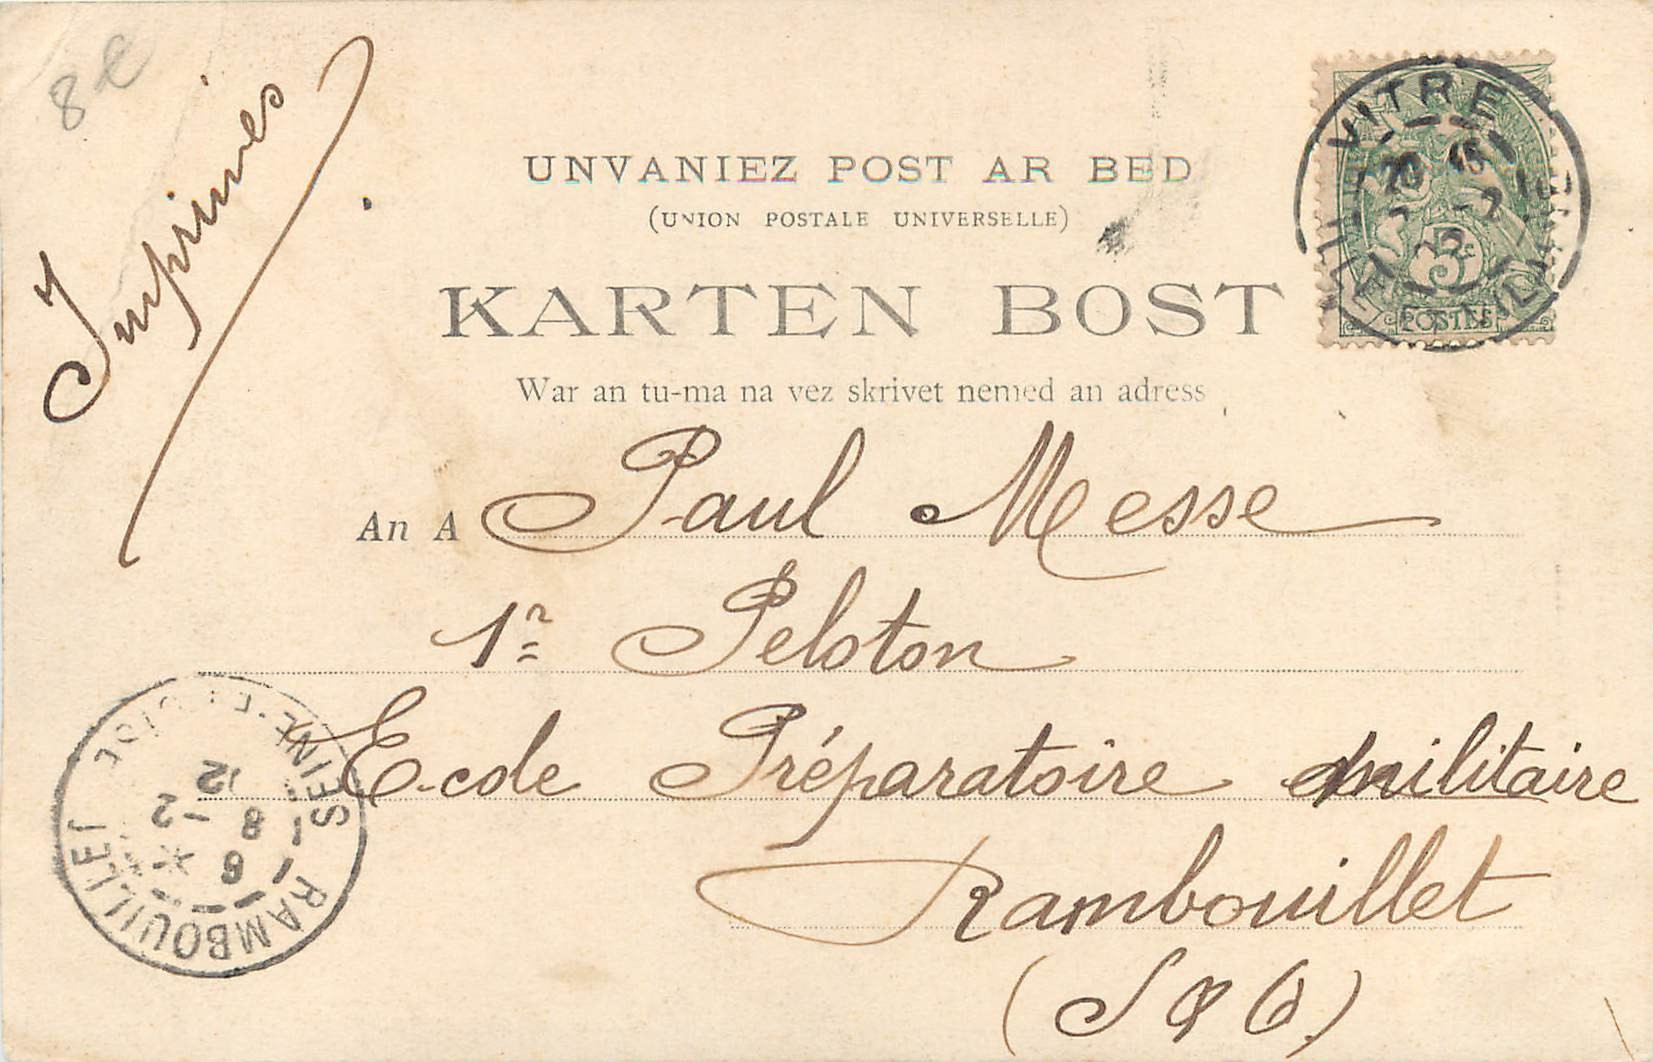 8 €
Imprimés
UNVANIEZ POST AR BED
(UNION POSTALE UNIVERSELLE)
KARTEN BOST
War an tu-ma na vez skrivet nemed an adress
VITRE
ILLE-ET-VILAINE
5c
POSTES
An A Paul Messe
1er Peloton
Ecole Préparatoire militaire
Rambouillet
(S & O)
RAMBOUILLET
SEINE-ET-OISE
6
8 -2
12